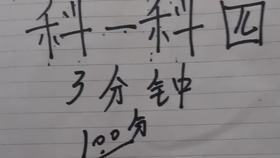 科一科四
3分钟
100分